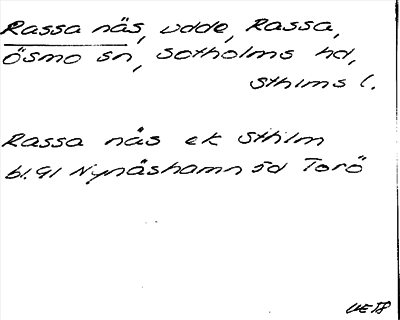 Rassa näs, udde, Rassa,
Ösmo sn, Sotholms hd,
Sthlms l.
Rassa näs ek Sthlm
bl. 91 Nynäshamn sd Torö